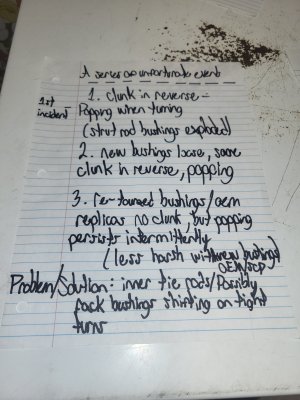 A series of unfortunate events
1st incident
1. clunk in reverse -
Popping when turning
(strut rod bushings exploded)
2. new bushings loose, some
clunk in reverse, popping
3. re-torqued bushings/oem
replicas no clunk, but popping
persists intermittently
(less harsh with new bushings)
OEM/
Problem/Solution: inner tie rods/Possibly
rack bushings shifting on tight
turns